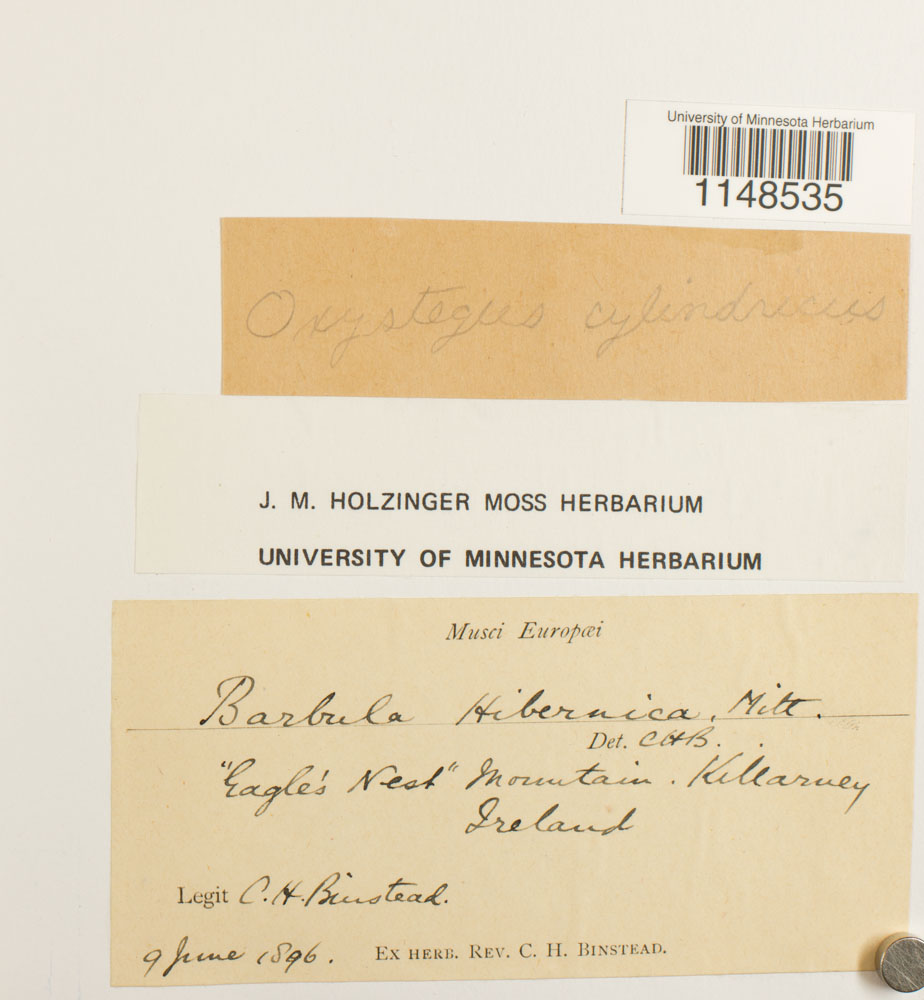 University of Minnesota Herbarium
1148535
Oxystegus cylindricus
J. M. HOLZINGER MOSS HERBARIUM
UNIVERSITY OF MINNESOTA HERBARIUM
Musci Europæi
Barbula Hibernica. Mitt.
Det. CHB.
"Eagle's Nest" Mountain. Killarney
Ireland
Legit C. H. Binstead.
9 June 1896. Ex herb. Rev. C. H. Binstead.